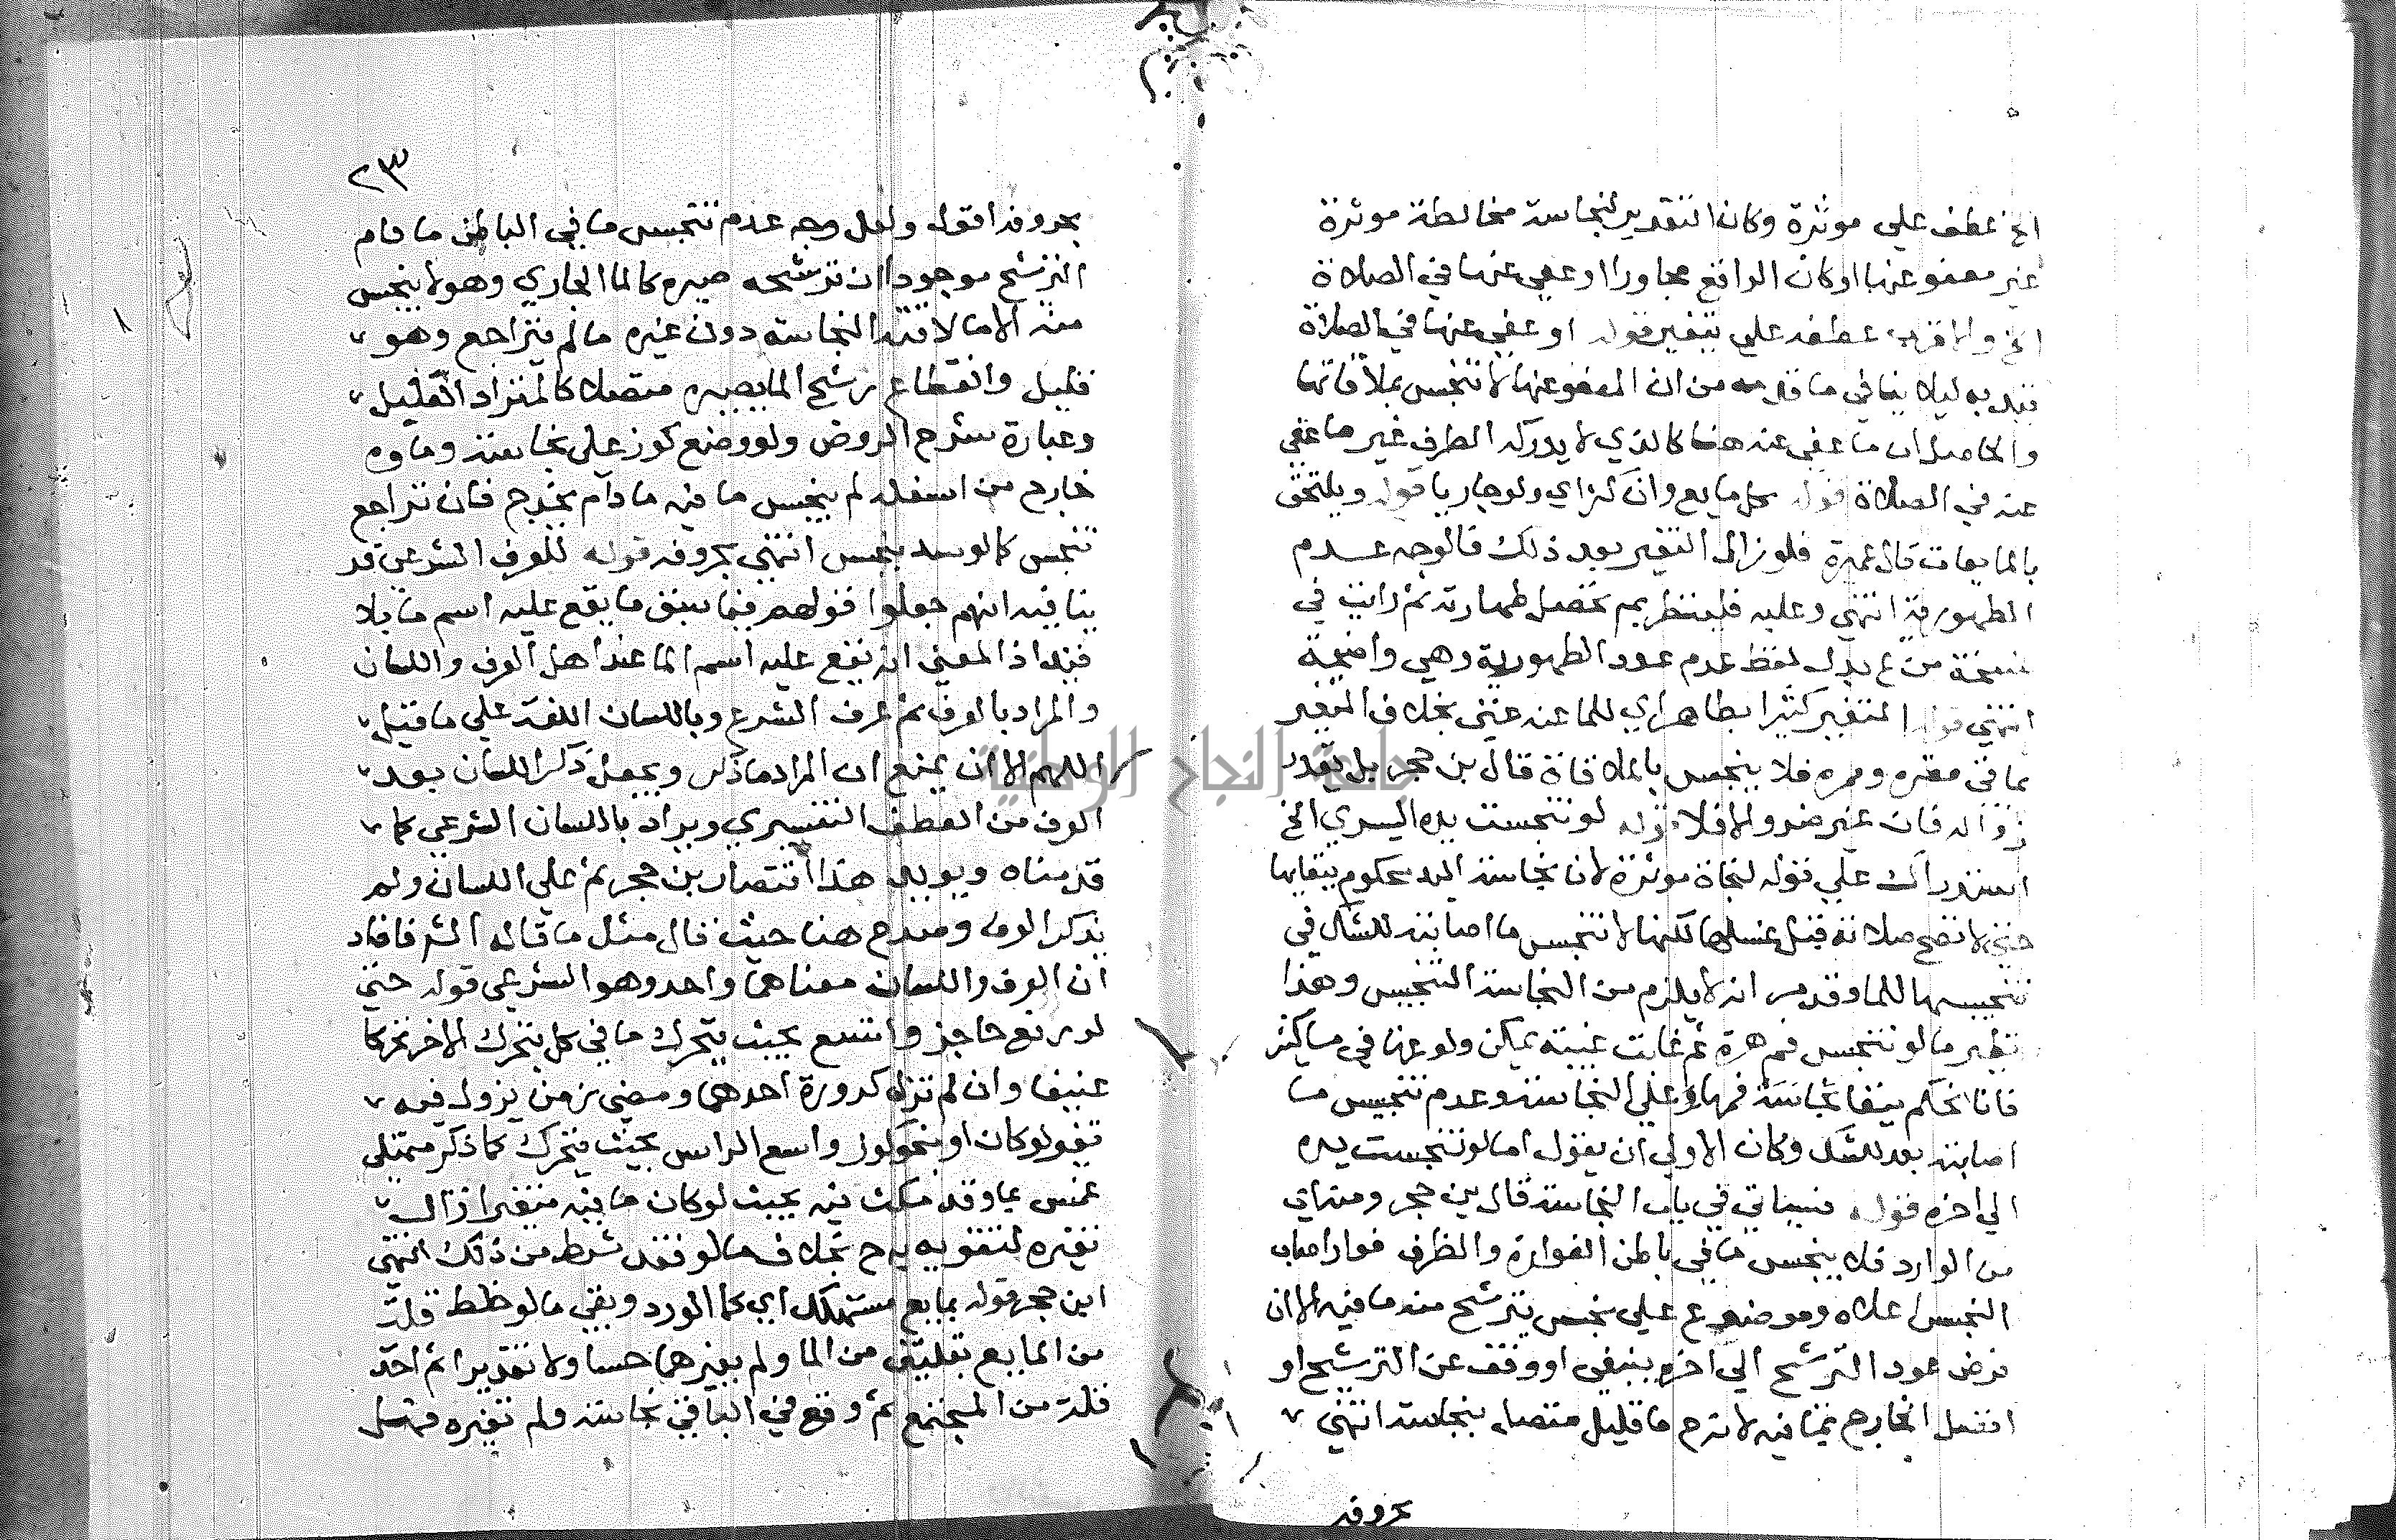 الخ عطف علي موثرة وكان التقدير لنجاسة مخالطة موثرة
غير معفو عنها او كان الواقع مجاورا او عفي عنها في الصلاة
الخ والاقرب عطفه علي بتغير قوله او عفي عنها في الصلاة
قيد به ليلا ينافي ما قدمه من ان المعفو عنها لا تنجس بملاقاتها
والحاصل ان ما عفي عنه هنا كالذي لا يدركه الطرف غير ما عفي
عنه في الصلاة قوله كل مايع وان كثر اي ولو جاريا قوله ويلتحق
بالمايعات قال عميرة فلو زال التغير بعد ذلك فالوجه عدم
الطهورية انتهي وعليه فلينظر بم تحصل طهارته ثم رايت في
نسخة من ع بدل لفظ عدم عود الطهورية وهي واضحة
انتهي قوله المتغير كثيرا بطاهر اي للما عنه غني بخلاف المتغير
بما في مقره وممره فلا ينجس بالملاقاة قال بن حجر بل يقدر
زواله فان غير ضر والا فلا قوله لو تنجست يده اليسري الخ
استدراك علي قوله لنجاة موثرة لان نجاسة اليد محكوم ببقايها
حتي لا تصح صلاته قبل غسلها لكنها لا تنجس ما اصابته للشك في
تنجيسها للما وقد مر انه لا يلزم من النجاسة التنجيس وهذا
نظير ما لو تنجس فم هرة ثم غابت غيبة يمكن ولوغها في ما كثر
فانا نحكم ببقا نجاسة فمها وعلي النجاسة وعدم تنجيس ما
اصابته بعد للشك وكان الاولي ان يقول اما لو تنجست يده
الي اخره قوله فسياتي في باب النجاسة قال بن حجر ومنه اي
من الوارد فلا ينجس ما في باطن الفوارة والظرف فوار اصاب
النجس اعلاه وموضوع علي نجس يترشح منه ما فيه الا ان
فرض عود الترشح الي اخره ينبغي او وقف عن الترشح او
اتصل الخارج بما فيه لانه ح ما قليل متصل بنجاسة انتهي
بحروفه
٢٣
بحروفه اقول ولعل وجه عدم تنجس ما في الباطن ما دام
الترشح موجودا ان ترشحه صيره كالما الجاري وهو لا ينجس
منه الا ما لاقته النجاسة دون غيره ما لم يتراجع وهو
قليل وانقطاع رشح الما يصيره متصلا كالمتراد القليل
وعبارة شرح الروض ولو وضع كوز علي نجاسة وماوه
خارج من اسفله لم ينجس ما فيه ما دام يخرج فان تراجع
تنجس كما لو سد بنجس انتهي بحروفه قوله للعرف الشرعي قد
ينافيه انهم جعلوا قولهم فيما سبق ما يقع عليه اسم ما بلا
قيد اذ المعني انه يقع عليه اسم الما عند اهل العرف واللسان
والمراد بالعرف ثم عرف الشرع وباللسان اللغة علي ما قيل
اللهم الا ان يمنع ان المراد ما ذكر ويجعل ذكر اللسان بعد
العرف من العطف التفسيري ويراد باللسان الشرعي كما
قدمناه ويويد هذا اقتصار بن حجر ثم علي اللسان ولم
يذكر العرف وصرح هنا حيث قال مثل ما قاله الش فافاد
ان العرف واللسان معناهما واحد وهو الشرعي قوله حتي
لو رفع حاجز واتسع بحيث يتحرك ما في كل بتحرك الاخر تحركا
عنيفا وان لم تزل كدورة احدهما ومضي زمن يزول فيه
تغير لو كان او بنحو كوز واسع الراس بحيث يتحرك كما ذكر ممتلي
غمس بما وقد مكث فيه بحيث لو كان ما فيه متغيرا زال
تغيره لتقويه به ح بخلاف ما لو فقد شرط من ذلك انتهي
ابن حجر قوله بمايع مستهلك اي كما الورد وبقي ما لو خلط قلة
من المايع بقلتين من الما ولم يغيرهما حسا ولا تقديرا ثم اخذ
قلة من المجتمع ثم وقع في الباقي نجاسة ولم تغيره فهل
جامعة النجاح الوطنية